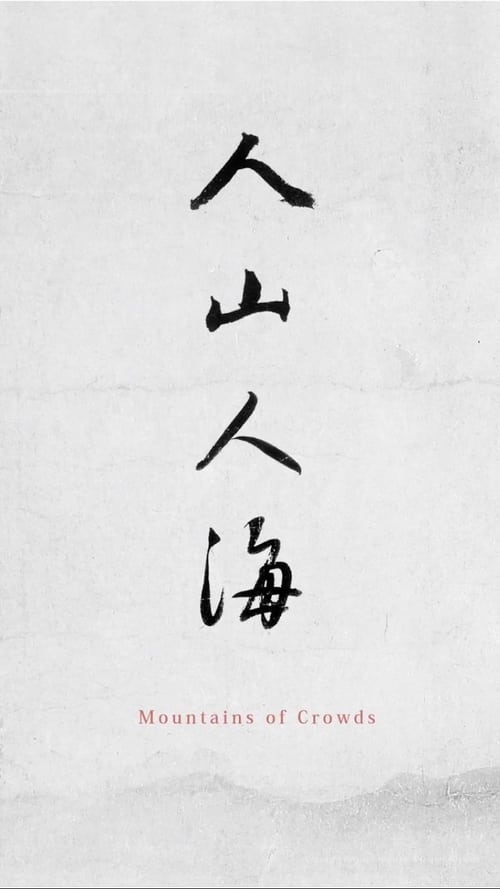 人山人海
Mountains of Crowds